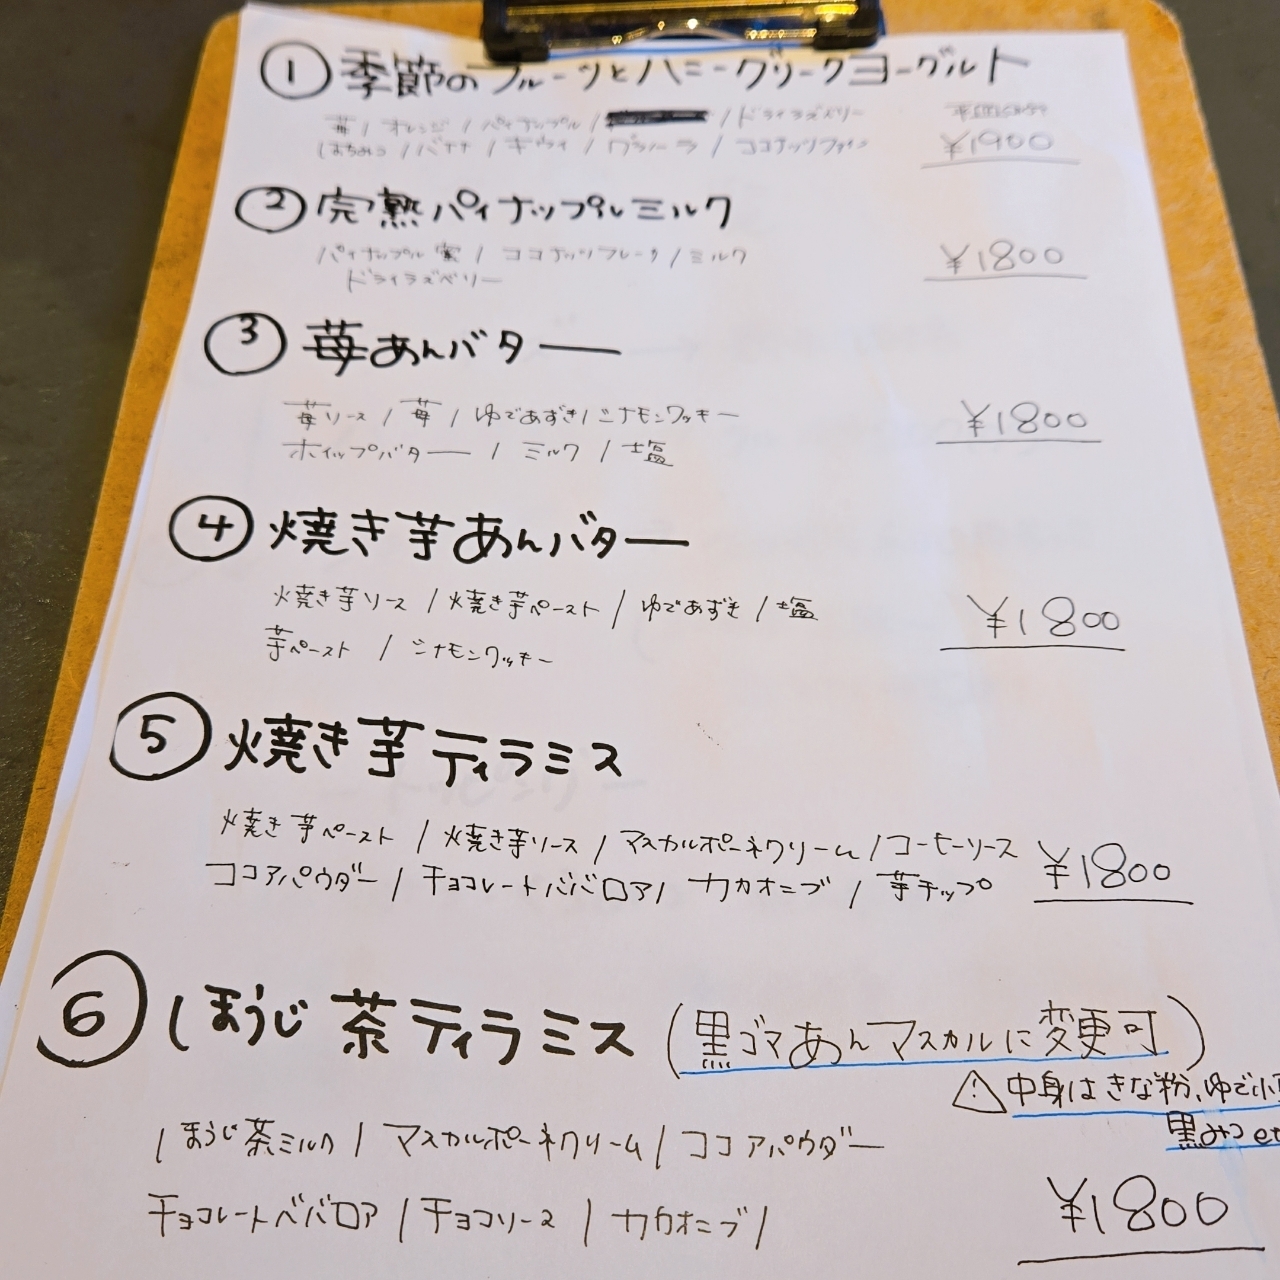 ① 季節のフルーツとハニーグリークヨーグルト
苺 / オレンジ / パイナップル / / ドライラズベリー
はちみつ / バナナ / キウイ / グラノーラ / ココナッツファイン
¥1900
② 完熟パイナップルミルク
パイナップル蜜 / ココナッツフレーク / ミルク
ドライラズベリー
¥1800
③ 苺あんバター
苺ソース / 苺 / ゆであずき / シナモンクッキー
ホイップバター / ミルク / 塩
¥1800
④ 焼き芋あんバター
焼き芋ソース / 焼き芋ペースト / ゆであずき / 塩
芋ペースト / シナモンクッキー
¥1800
⑤ 焼き芋ティラミス
焼き芋ペースト / 焼き芋ソース / マスカルポーネクリーム / コーヒーソース
ココアパウダー / チョコレートババロア / カカオニブ / 芋チップ
¥1800
⑥ ほうじ茶ティラミス (黒ゴマあんマスカルに変更可)
⚠ 中身はきな粉、ゆで小
黒みつ et
/ ほうじ茶ミルク / マスカルポーネクリーム / ココアパウダー
チョコレートババロア / チョコソース / カカオニブ /
¥1800